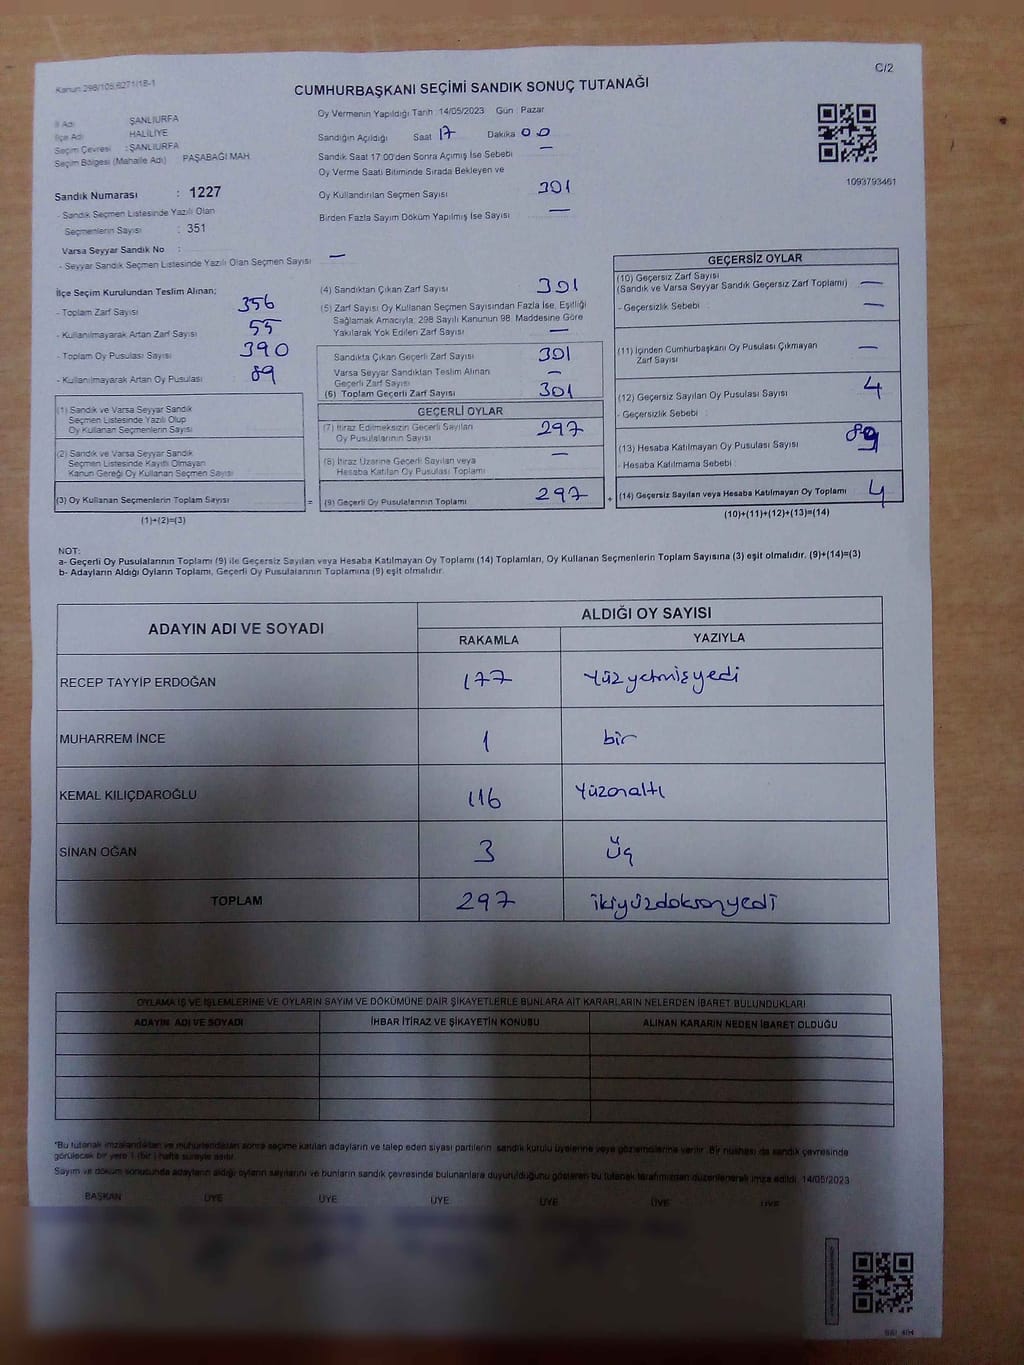 C/2
Kanun 298/105,6271/18-1
CUMHURBAŞKANI SEÇİMİ SANDIK SONUÇ TUTANAĞI
İl Adı ŞANLIURFA
İlçe Adı HALİLİYE
Seçim Çevresi : ŞANLIURFA
Seçim Bölgesi (Mahalle Adı) PAŞABAĞI MAH.
Sandık Numarası : 1227
- Sandık Seçmen Listesinde Yazılı Olan
Seçmenlerin Sayısı : 351
Varsa Seyyar Sandık No :
- Seyyar Sandık Seçmen Listesinde Yazılı Olan Seçmen Sayısı —
Oy Vermenin Yapıldığı Tarih : 14/05/2023 Gün : Pazar
Sandığın Açıldığı Saat 17 Dakika 00
Sandık Saat 17.00'den Sonra Açımış İse Sebebi —
Oy Verme Saati Bitiminde Sırada Bekleyen ve
Oy Kullandırılan Seçmen Sayısı 301
Birden Fazla Sayım Döküm Yapılmış İse Sayısı —
1093793461
İlçe Seçim Kurulundan Teslim Alınan;
- Toplam Zarf Sayısı 356
- Kullanılmayarak Artan Zarf Sayısı 55
- Toplam Oy Pusulası Sayısı 390
- Kullanılmayarak Artan Oy Pusulası : 89
(1) Sandık ve Varsa Seyyar Sandık
Seçmen Listesinde Yazılı Olup
Oy Kullanan Seçmenlerin Sayısı
(2) Sandık ve Varsa Seyyar Sandık
Seçmen Listesinde Kayıtlı Olmayan
Kanun Gereği Oy Kullanan Seçmen Sayısı
(3) Oy Kullanan Seçmenlerin Toplam Sayısı =
(1)+(2)=(3)
(4) Sandıktan Çıkan Zarf Sayısı 301
(5) Zarf Sayısı Oy Kullanan Seçmen Sayısından Fazla İse, Eşitliği
Sağlamak Amacıyla; 298 Sayılı Kanunun 98. Maddesine Göre
Yakılarak Yok Edilen Zarf Sayısı —
Sandıkta Çıkan Geçerli Zarf Sayısı 301
Varsa Seyyar Sandıktan Teslim Alınan
Geçerli Zarf Sayısı —
(6) Toplam Geçerli Zarf Sayısı 301
GEÇERLİ OYLAR
(7) İtiraz Edilmeksizin Geçerli Sayılan
Oy Pusulalarının Sayısı 297
(8) İtiraz Üzerine Geçerli Sayılan veya
Hesaba Katılan Oy Pusulaları Toplamı —
(9) Geçerli Oy Pusulalarının Toplamı 297 +
GEÇERSİZ OYLAR
(10) Geçersiz Zarf Sayısı
(Sandık ve Varsa Seyyar Sandık Geçersiz Zarf Toplamı) —
- Geçersizlik Sebebi : —
(11) İçinden Cumhurbaşkanı Oy Pusulası Çıkmayan
Zarf Sayısı —
(12) Geçersiz Sayılan Oy Pusulası Sayısı 4
- Geçersizlik Sebebi :
(13) Hesaba Katılmayan Oy Pusulası Sayısı 89
- Hesaba Katılmama Sebebi :
(14) Geçersiz Sayılan veya Hesaba Katılmayan Oy Toplamı 4
(10)+(11)+(12)+(13)=(14)
NOT:
a- Geçerli Oy Pusulalarının Toplamı (9) ile Geçersiz Sayılan veya Hesaba Katılmayan Oy Toplamı (14) Toplamları, Oy Kullanan Seçmenlerin Toplam Sayısına (3) eşit olmalıdır. (9)+(14)=(3)
b- Adayların Aldığı Oyların Toplamı, Geçerli Oy Pusulalarının Toplamına (9) eşit olmalıdır.
ADAYIN ADI VE SOYADI ALDIĞI OY SAYISI
RAKAMLA YAZIYLA
RECEP TAYYİP ERDOĞAN 177 Yüzyetmişyedi
MUHARREM İNCE 1 bir
KEMAL KILIÇDAROĞLU 116 Yüzonaltı
SİNAN OĞAN 3 Üç
TOPLAM 297 ikiyüzdoksanyedi
OYLAMA İŞ VE İŞLEMLERİNE VE OYLARIN SAYIM VE DÖKÜMÜNE DAİR ŞİKAYETLERLE BUNLARA AİT KARARLARIN NELERDEN İBARET BULUNDUKLARI
ADAYIN ADI VE SOYADI İHBAR İTİRAZ VE ŞİKAYETİN KONUSU ALINAN KARARIN NEDEN İBARET OLDUĞU
*Bu tutanak imzalandıktan ve mühürlendikten sonra seçime katılan adayların ve talep eden siyasi partilerin sandık kurulu üyelerine veya gözlemcilerine verilir. Bir nüshası da sandık çevresinde
görülecek bir yere 1 (bir) hafta süreyle asılır.
Sayım ve döküm sonucunda adayların aldığı oyların sayılarını ve bunların sandık çevresinde bulunanlara duyurulduğunu gösteren bu tutanak tarafımızdan düzenlenerek imza edildi. 14/05/2023
BAŞKAN ÜYE ÜYE ÜYE ÜYE ÜYE ÜYE